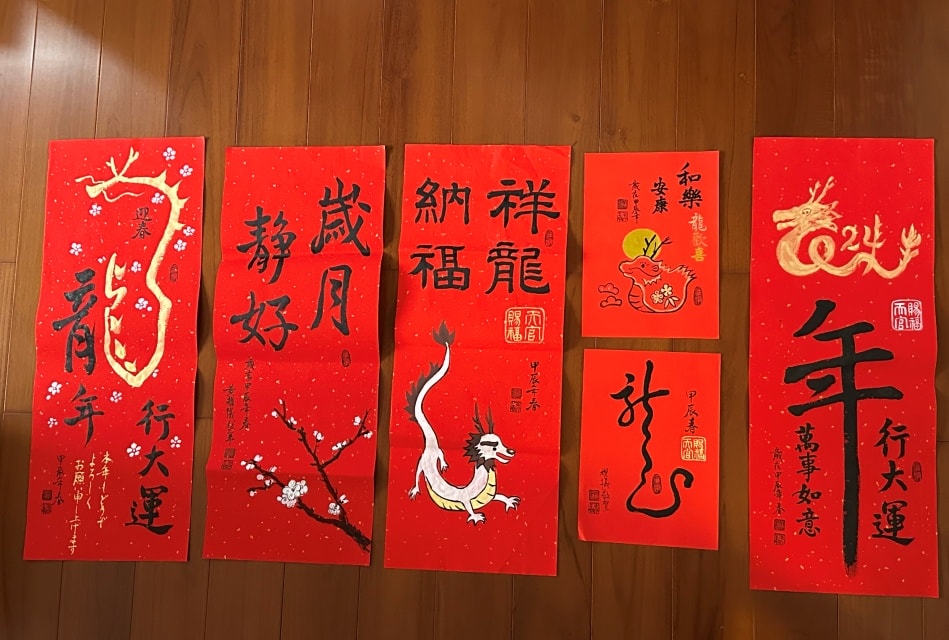 迎春
龍年
行大運
本年もどうぞ
よろしく
お願い申し上げます
甲辰年春
歲月
静好
歲在甲辰年春
祥龍
納福
天官
賜福
甲辰年春
和樂
安康
龍歡喜
歲在甲辰年
龍
甲辰春
天官
賜福
2024
天官
賜福
年
行大運
萬事如意
歲在甲辰年春